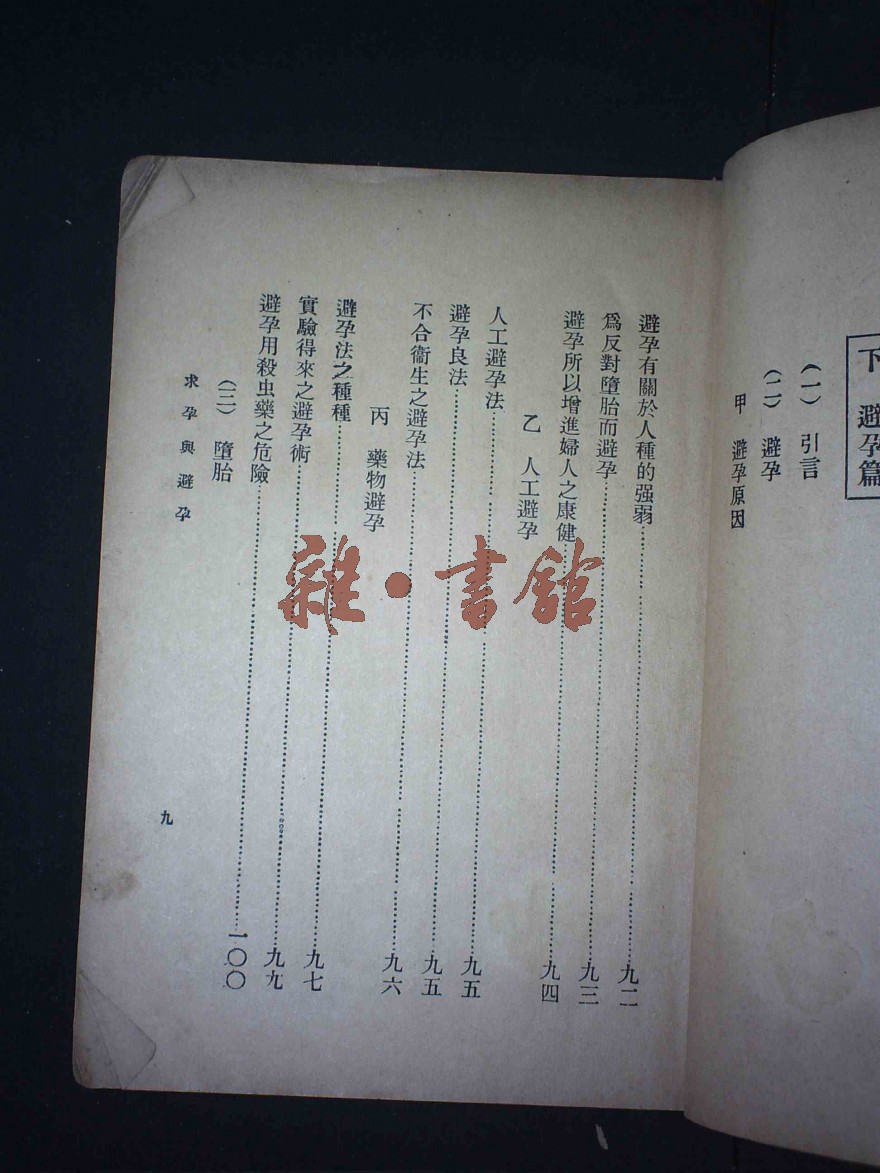 下 避孕篇
（一）引言
（二）避孕
甲 避孕原因
避孕有關於人種的强弱……九二
爲反對墮胎而避孕……九三
避孕所以增進婦人之康健……九四
乙 人工避孕
人工避孕法……九五
避孕良法……九五
不合衞生之避孕法……九六
丙 藥物避孕
避孕法之種種……九七
實驗得來之避孕術……九九
避孕用殺虫藥之危險……一〇〇
（三）墮胎
求孕與避孕
九
雜·書館